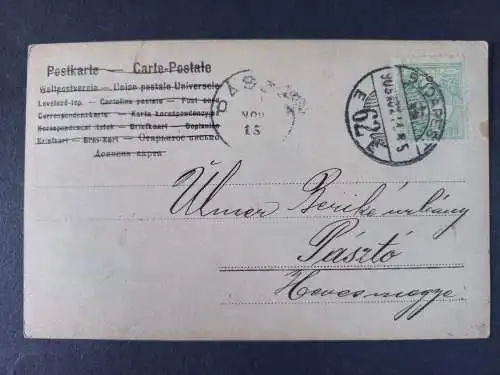 Postkarte — Carte-Postale
Weltpostverein — Union postale Universelle
Levelező-lap. — Cartolina postale — Post card
Correspondenzkarte — Karta korespondencyjna
Korespondenční lístek — Brefkort — Dopisnica
Briefkart — Brev-Kort — Открытое письмо
Дописна карта
NOV
15
BUDAPEST
Ulmer Berike urleány
Pásztó
Hevesmegye